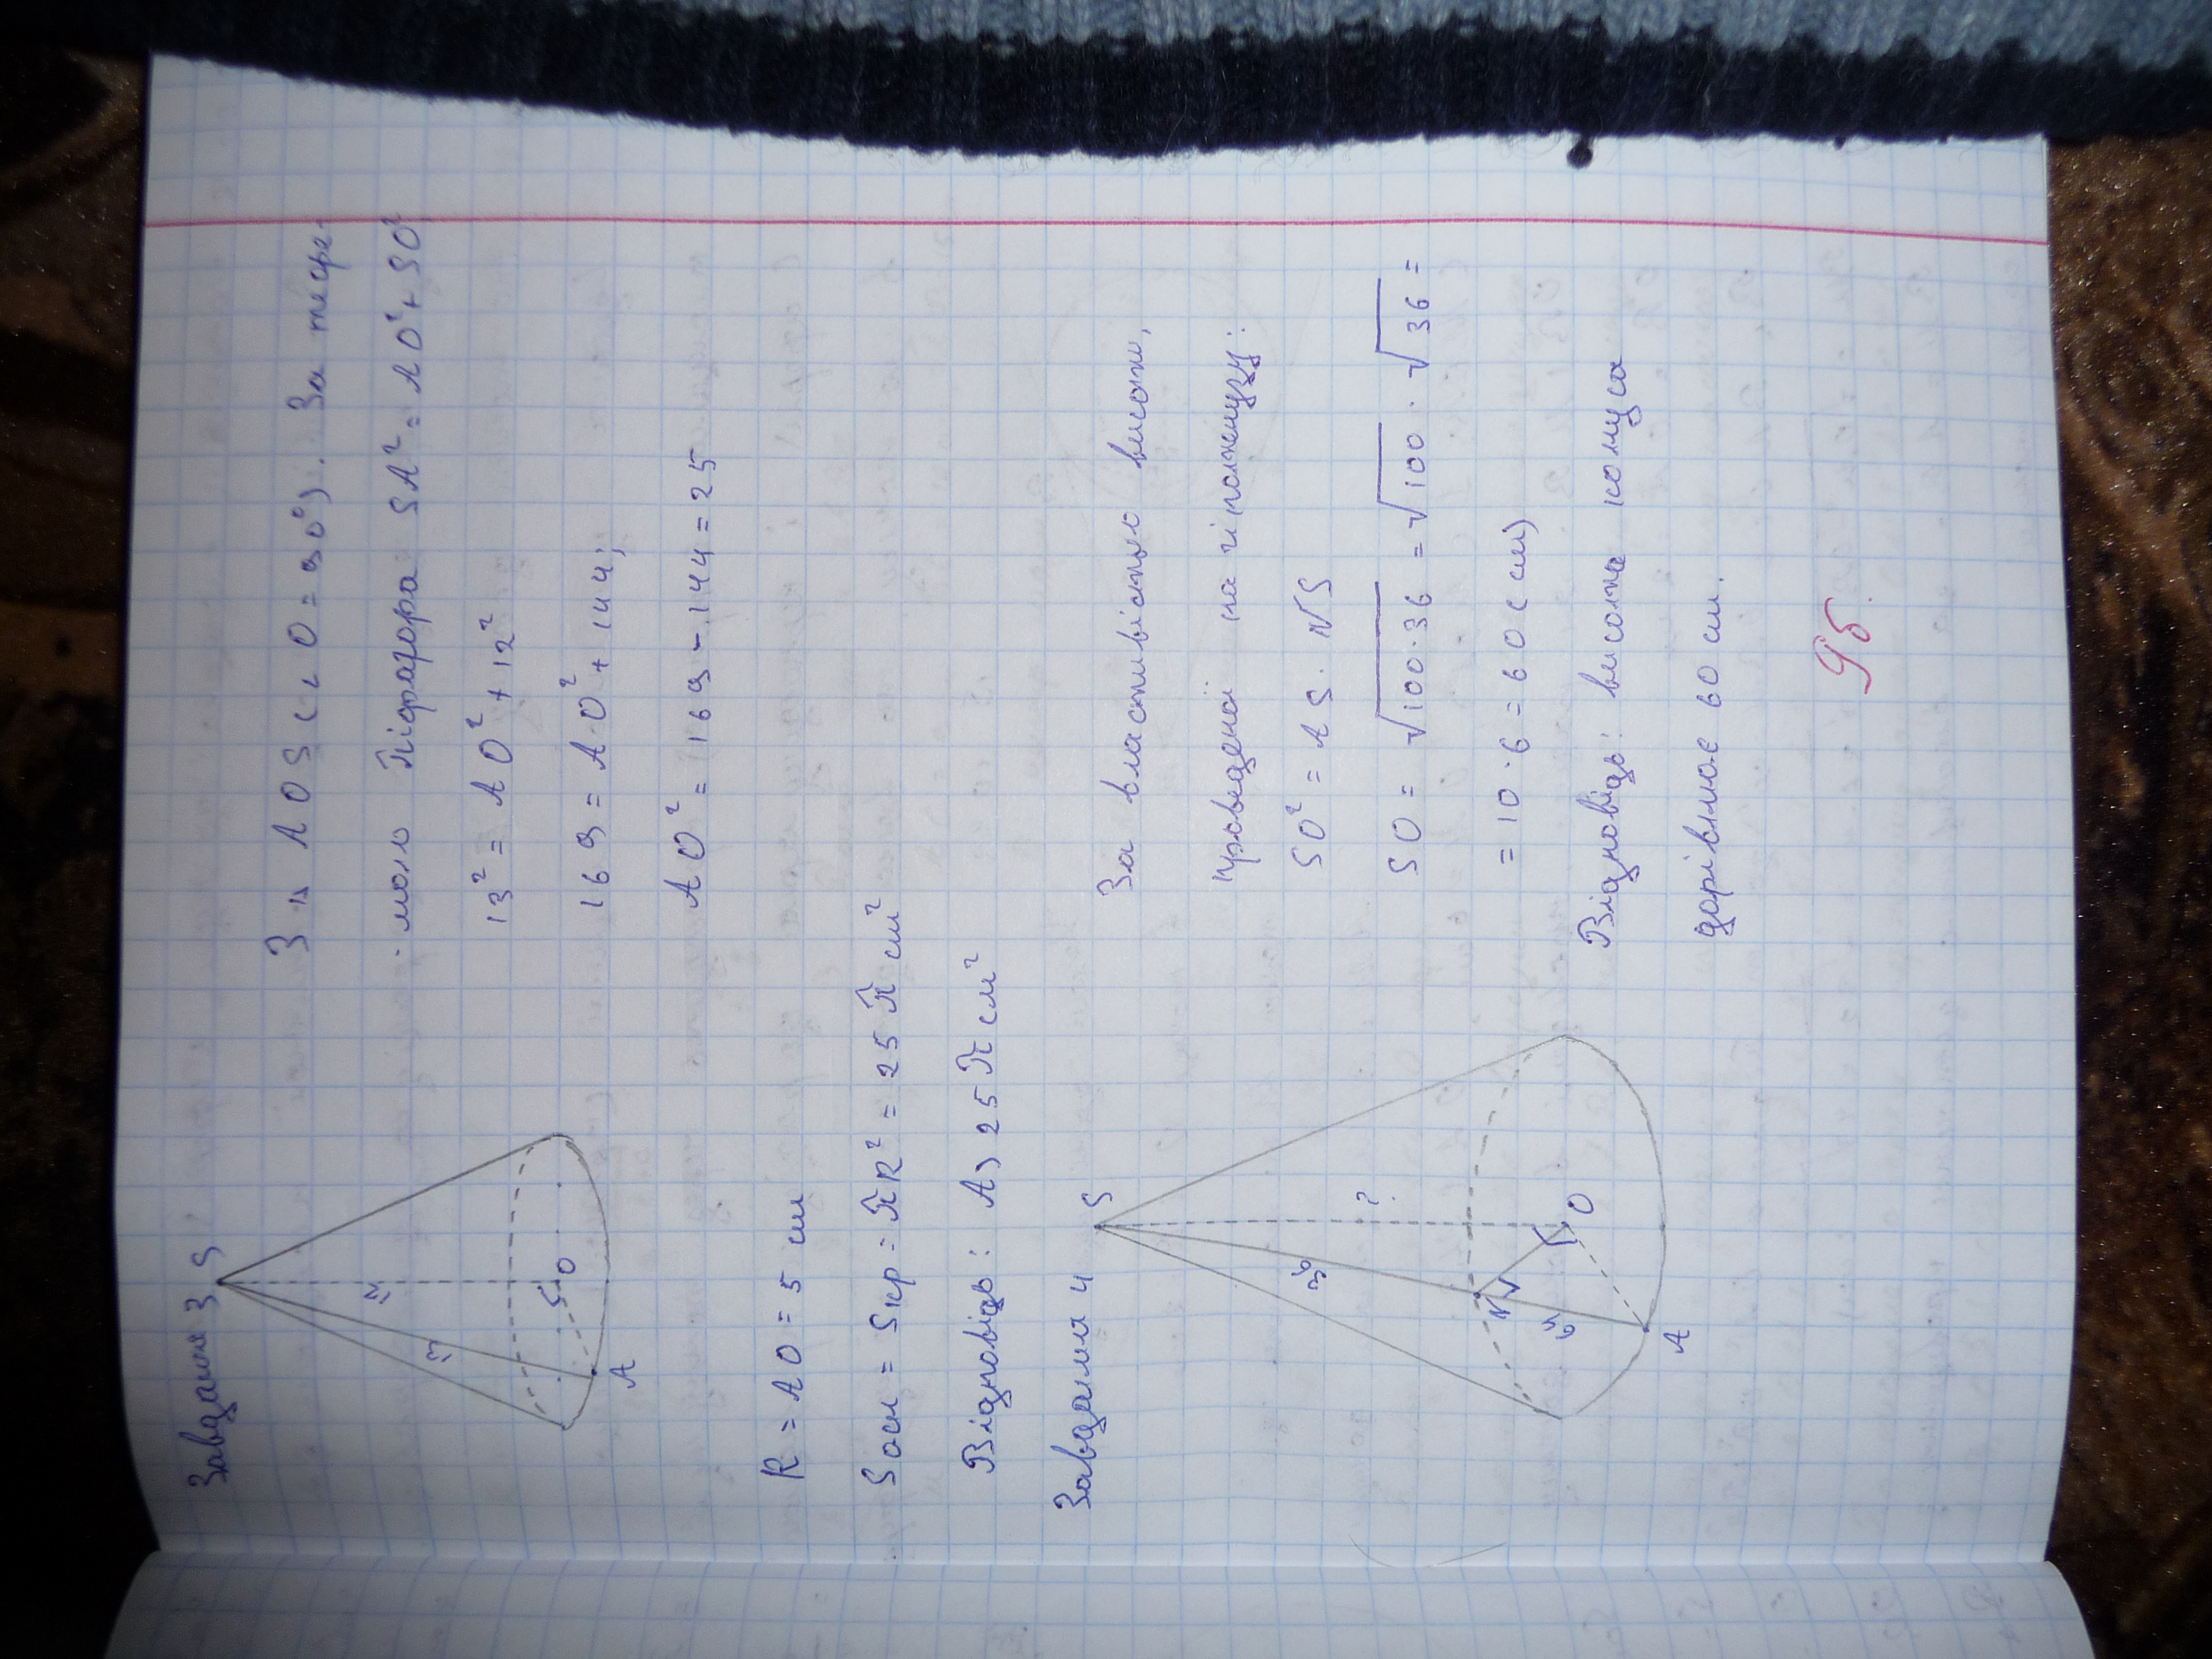 Завдання 3
S
12
13
O
A
З Δ AOS (∠ O = 90°). За теоре-
мою Піфагора SA² = AO² + SO²
13² = AO² + 12²
169 = AO² + 144;
AO² = 169 - 144 = 25
R = AO = 5 см
Sосн = Sкр = πR² = 25π см²
Відповідь: А) 25π см²
Завдання 4
S
?
36
N
64
O
A
За властивістю висоти,
проведеної на гіпотенузу:
SO² = AS · NS
SO = √100·36 = √100 · √36 =
= 10 · 6 = 60 (см)
Відповідь: висота конуса
дорівнює 60 см.
9б